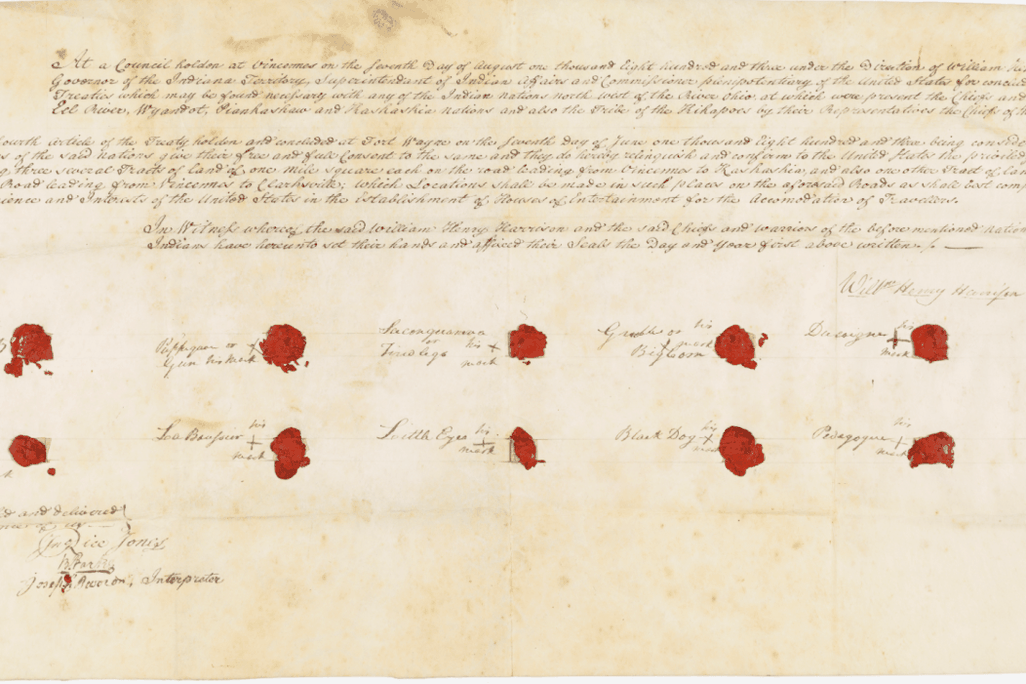 At a Council holden at Vincennes on the seventh Day of August one thousand Eight hundred and three under the Direction of William
Governor of the Indiana Territory, Superintendant of Indian Affairs and Commissioner plenipotentiary of the United States for
Treaties which may be found necessary with any of the Indian nations north west of the River Ohio, at which were present the Chiefs and
Eel River, Wyandot, Piankashaw and Kaskaskia nations and also the Tribe of the Kikapoes by their Representatives the Chiefs of the
fourth Article of the Treaty holden and concluded at Fort Wayne on the seventh day of June one thousand Eight hundred and three being
of the said nations give their free and full Consent to the same and they do hereby relinquish and confirm to the United States the
three several Tracts of land of one mile square each on the road leading from Vincennes to Kaskaskia, and also one other Tract of
Road leading from Vincennes to Clarksville; which Locations shall be made in such places on the aforesaid Roads as shall best
ience and Interests of the United States in the Establishment of Houses of Entertainment for the Accomodation of Travellers.
In Witness whereof the said William Henry Harrison and the said Chiefs and warriors of the before mentioned
Indians have hereunto set their hands and affixed their Seals the Day and Year first above written
Will^m Henry Harrison
or Gun his mark
Saconquaneva or Tired legs his + mark
or Big Corn his x mark
Ducoigne his + mark
La Boussier his + mark
Little Eyes his + mark
Black Dog his x mark
Pedagogue his + mark
and delivered
Rice Jones
B. Parke
Joseph Barron, Interpreter